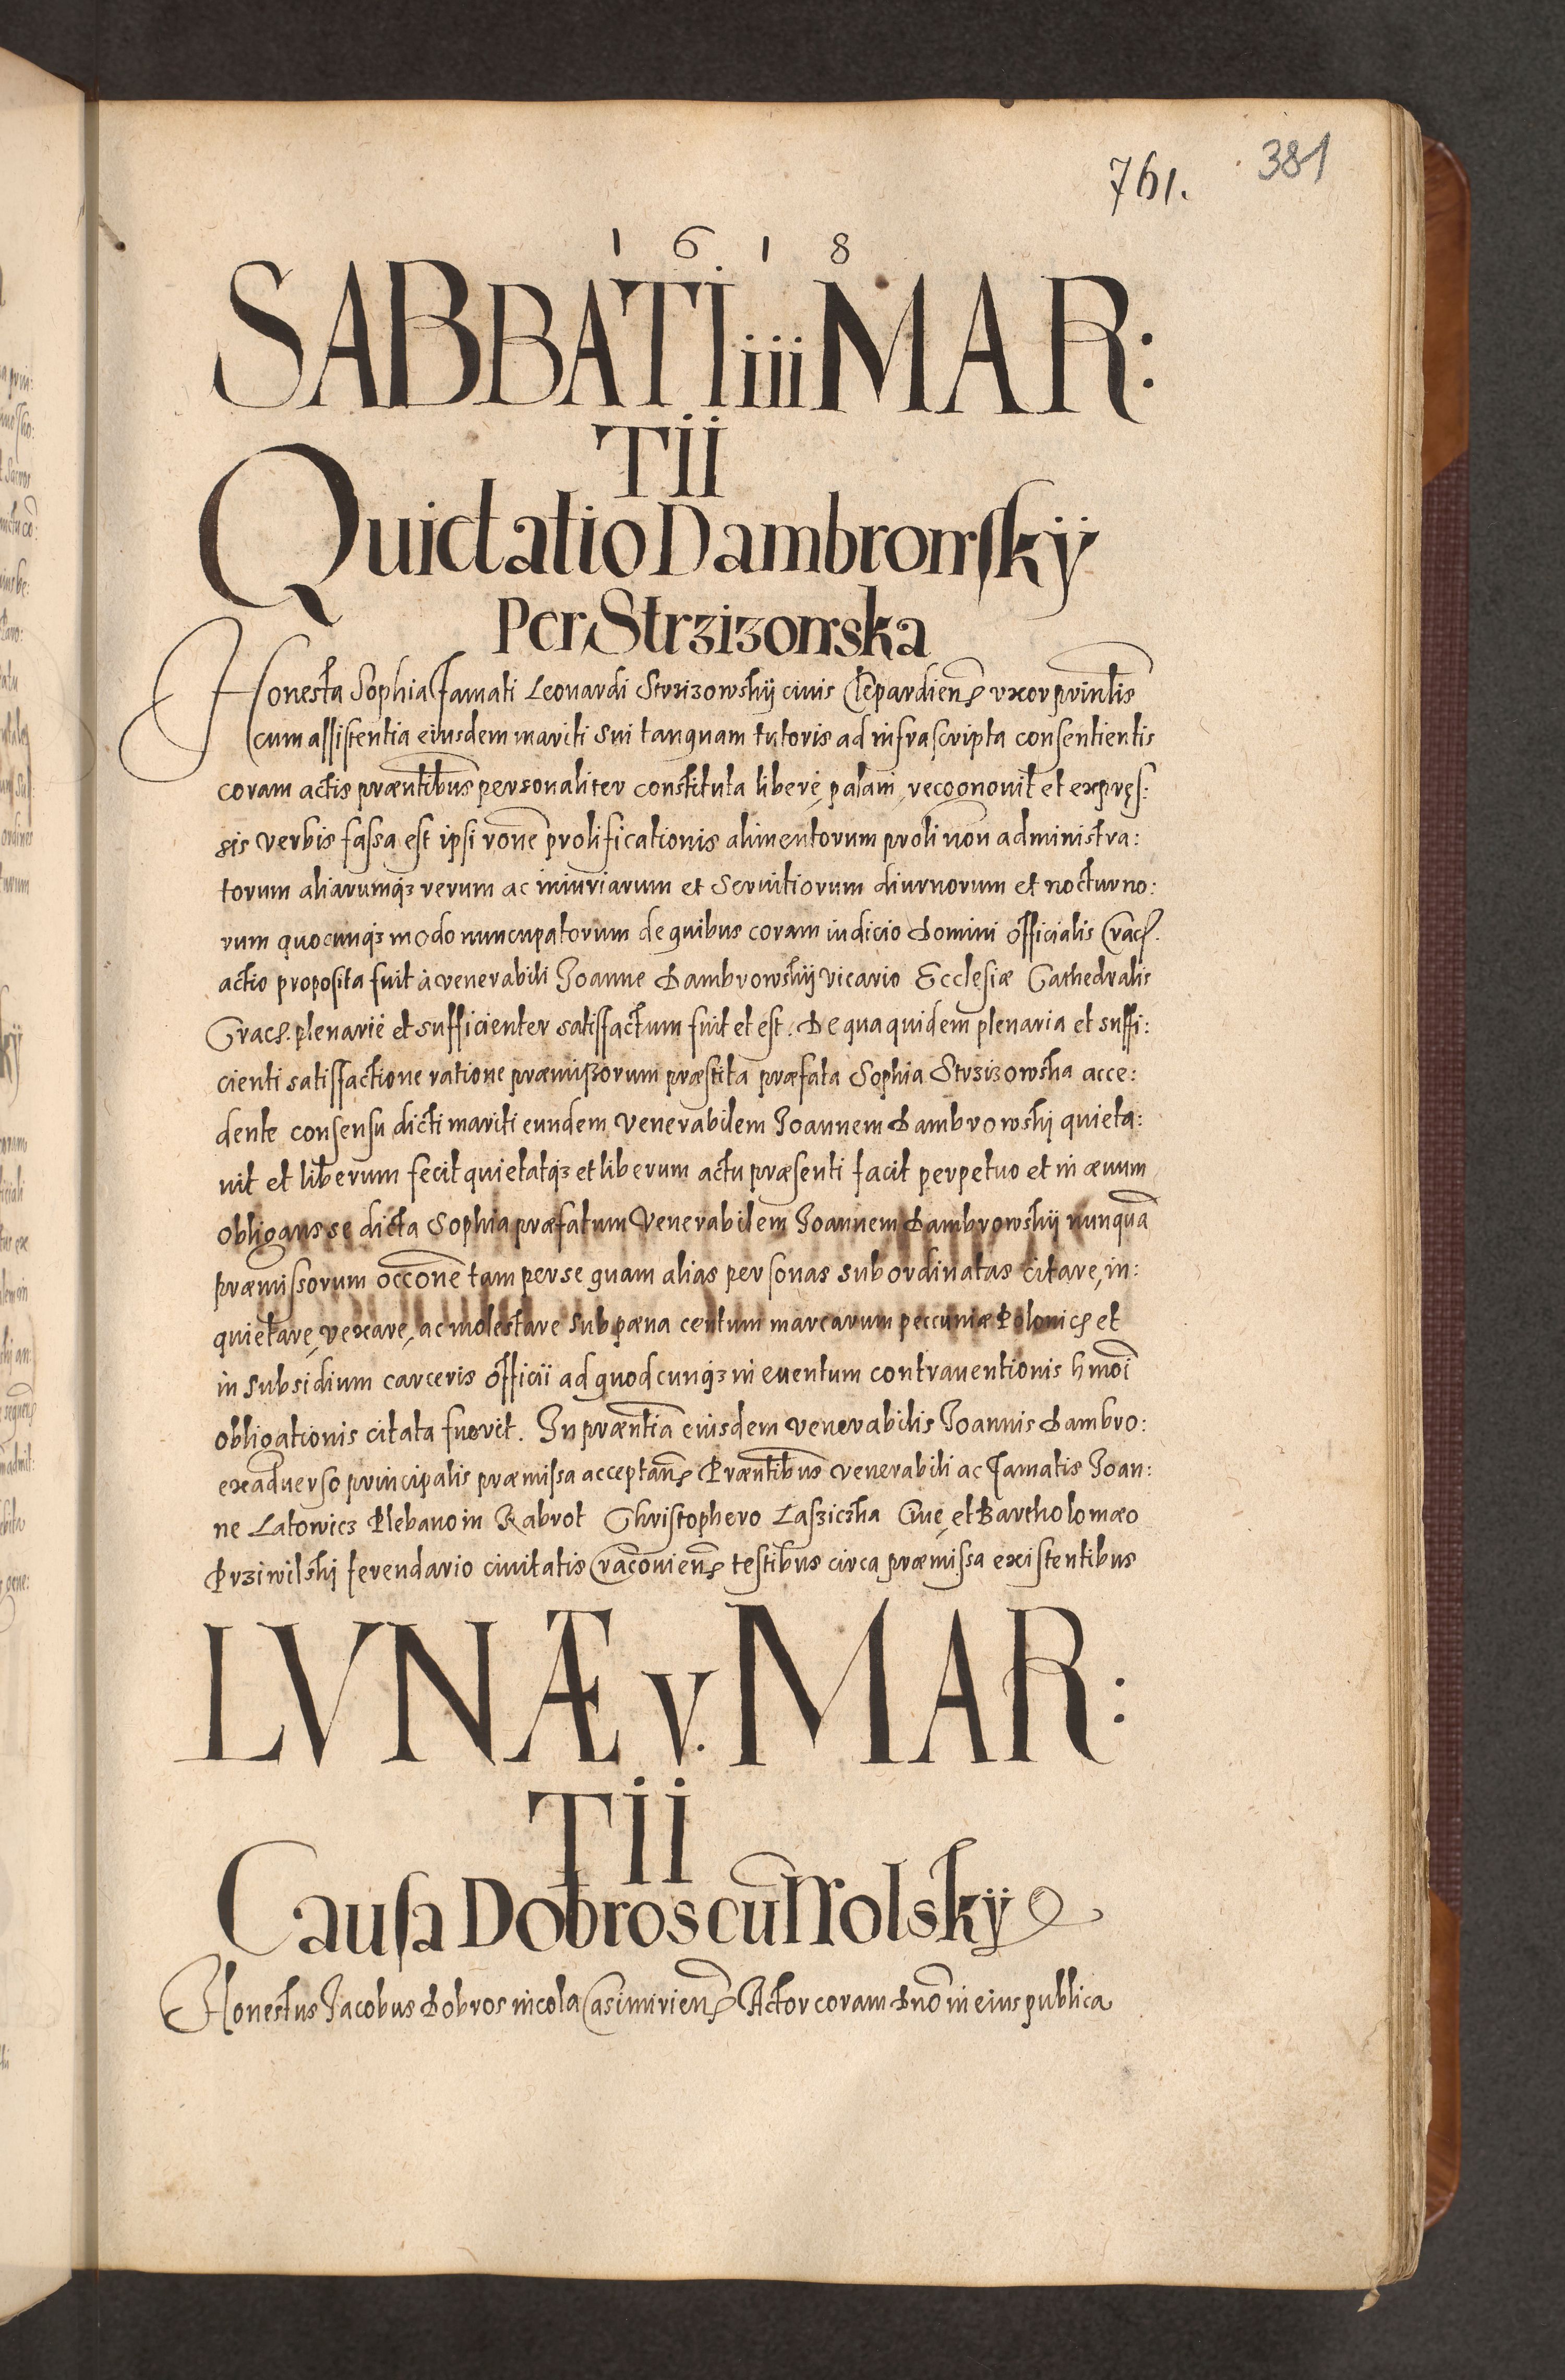 381
761.
1 6 1 8
SABBATI iiii MAR:
TII
Quictatio Dambrowsky
Per Strzizowska
Honesta Sophia famati Leonardi Strzizowskij civis Clepardiens uxor printlis
cum assistentia eiusdem mariti sui tanquam tutoris ad infrascripta consentientis
coram actis præntibus personaliter constituta liberè, palam, recognovit et expręs:
sis verbis fassa est ipsi rone prolificationis alimentorum proli non administra:
torum aliarumqꝫ rerum ac iniuriarum et servitiorum diurnorum et nocturno:
rum quocunqꝫ modo nuncupatorum de quibus coram iudicio Domini officialis Crac.
actio proposita fuit à venerabili Joanne Dambrowskij vicario Ecclesiæ Cathedralis
Crac. plenariè et sufficienter satisfactum fuit et est. De qua quidem plenaria et suffi:
cienti satisfactione ratione præmissorum præstita præfata Sophia Strzizowska acce:
dente consensu dicti mariti eundem Venerabilem Joannem Dambrowskij quieta:
vit et liberum fecit quietatqꝫ et liberum actu præsenti facit perpetuo et in ævum
obligans se dicta Sophia præfatum Venerabilem Joannem Dambrowskij nunquã
præmissorum occone tam per se quam alias personas subordinatas citare, in:
quietare, vexare, ac molestare sub pæna centum marcarum peccuniæ Polonicę et
in subsidium carceris officii ad quodcunqꝫ in eventum contraventionis hmoi
obligationis citata fuerit. In præntia eiusdem venerabilis Joannis Dambro:
ex adverso principalis præmissa acceptans Præntibus venerabili ac famatis Joan:
ne Latowicz Plebano in Rabrot Christophero Lasziczka Cive, et Bartholomæo
Prziwilski ferendario civitatis Cracoviens testibus circa præmissa existentibus
LVNÆ v. MAR:
TII
Causa Dobros cũ Wolskÿ
Honestus Jacobus Dobros incola Casimiriens Actor coram Dno in eius publica